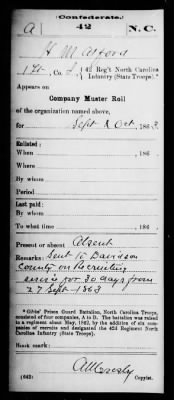 (Confederate.)
a 42 N.C.
H M Alford
1 Lt, Co. I, 42 Reg't North Carolina
Infantry (State Troops).*
Appears on
Company Muster Roll
of the organization named above,
for Sept & Oct, 1863.
Enlisted:
When , 186 .
Where
By whom
Period
Last paid:
By whom
To what time , 186 .
Present or absent Absent
Remarks: Sent to Davidson
County on Recruiting
service for 30 days from
27 Sept 1863
* Gibbs' Prison Guard Battalion, North Carolina Troops,
consisted of four companies, A to D. The battalion was raised
to a regiment about May, 1862, by the addition of six com-
panies of recruits and designated the 42d Regiment North
Carolina Infantry (State Troops).
Book mark:
(642) Copyist.